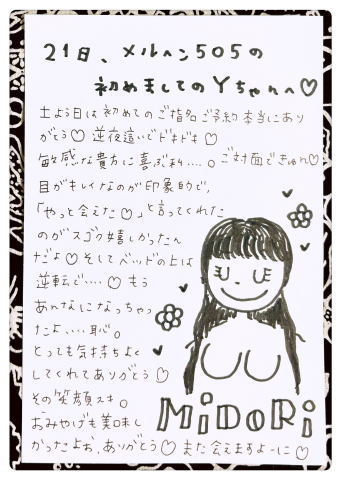 21日、メルヘン505の
初めましてのYちゃんへ♡
土よう日は初めてのご指名ご予約本当にあり
がとう♡逆夜這いでドキドキ♡
敏感な貴方に喜ぶ私....。ご対面できゅん♡
目がキレイなのが印象的で、
「やっと会えた♡」と言ってくれた
のがスゴク嬉しかったん
だよ♡そしてベッドの上は
逆転で....♡もう
あんなになっちゃっ
たよ....恥。
とっても気持ちよく
してくれてありがとう♡
その笑顔スキ。
おみやげも美味し
かったよぉ、ありがとう♡また会えますよーに♡
MiDORi